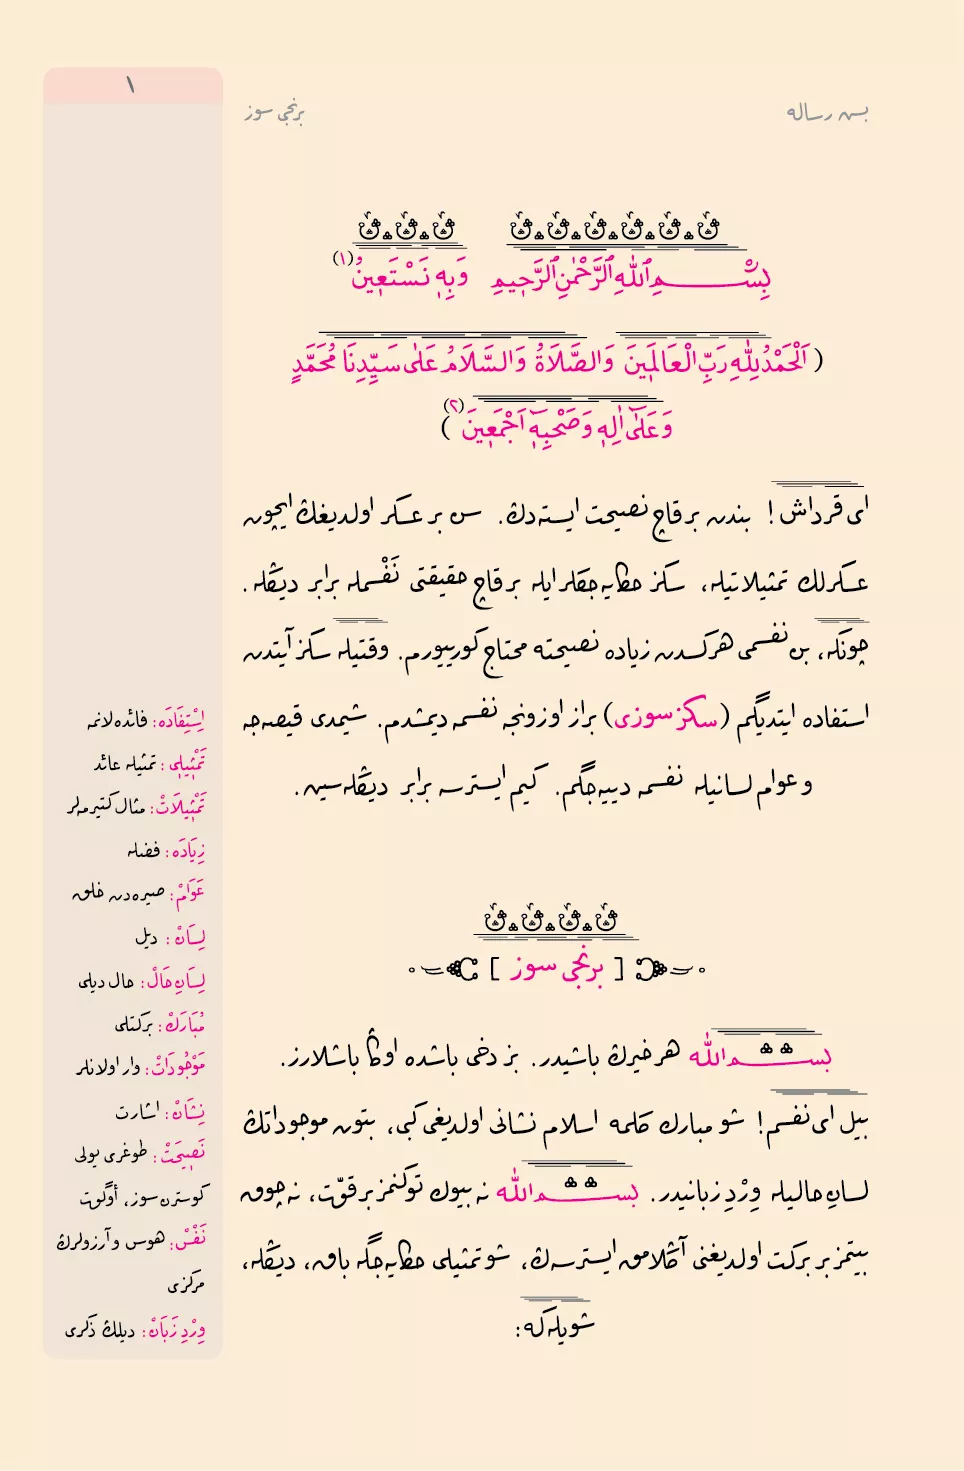 ١
بسن رساله
برنجی سوز
بِسْمِ ٱللّٰهِ ٱلرَّحْمٰنِ ٱلرَّحٖيمِ وَبِهٖ نَسْتَعٖينُ (١)
( اَلْحَمْدُ لِلّٰهِ رَبِّ الْعَالَمٖينَ وَالصَّلَاةُ وَالسَّلَامُ عَلٰى سَيِّدِنَا مُحَمَّدٍ
وَعَلٰٓى اٰلِهٖ وَصَحْبِهٖٓ اَجْمَعٖينَ (٢) )
ای قرداش! بندن بر قاچ نصیحت ایسته‌دڭ. سن بر عسكر اولدیغڭ ایچون
عسكرلك تمثیلاتیله، سكز حكایه‌جقلر ایله بر قاچ حقیقتی نَفْسمله برابر دیڭله.
چونكه، بن نفسمی هركسدن زیاده نصیحته محتاج كورییورم. وقتیله سكز آیتدن
استفاده ایتدیگم (سكز سوزی) براز اوزونجه نفسمه دیمشدم. شیمدی قیصه‌جه
و عوام لسانیله نفسمه دییه‌جگم. كیم ایسترسه برابر دیڭله‌سین.
[ برنجی سوز ]
بســم اللّٰه هر خیرڭ باشیدر. بز دخی باشده اوڭا باشلارز.
بیل ای نفسم! شو مبارك كلمه اسلام نشانی اولدیغی كبی، بتون موجوداتڭ
لسانِ حالیله وِرْدِ زبانیدر. بســم اللّٰه نه بیوك توكنمز بر قوّت، نه چوق
بیتمز بر بركت اولدیغنی آڭلامق ایسترسه‌ڭ، شو تمثیلی حكایه‌جگه باق، دیڭله،
شویله كه:
اِسْتِفَادَه: فائده‌لانمه
تَمْثٖيلٖى: تمثیله عائد
تَمْثٖيلَاتْ: مثال كتیرمه‌لر
زِيَادَه: فضله
عَوَامْ: صیره‌دن خلق
لِسَانْ: دیل
لِسَانِ حَالْ: حال دیلی
مُبَارَكْ: بركتلی
مَوْجُودَاتْ: وار اولانلر
نِشَانْ: اشارت
نَصٖيحَتْ: طوغری یولی
كوسترن سوز، أوگوت
نَفْسْ: هوس و آرزولرڭ
مركزی
وِرْدِ زَبَانْ: دیلڭ ذكری